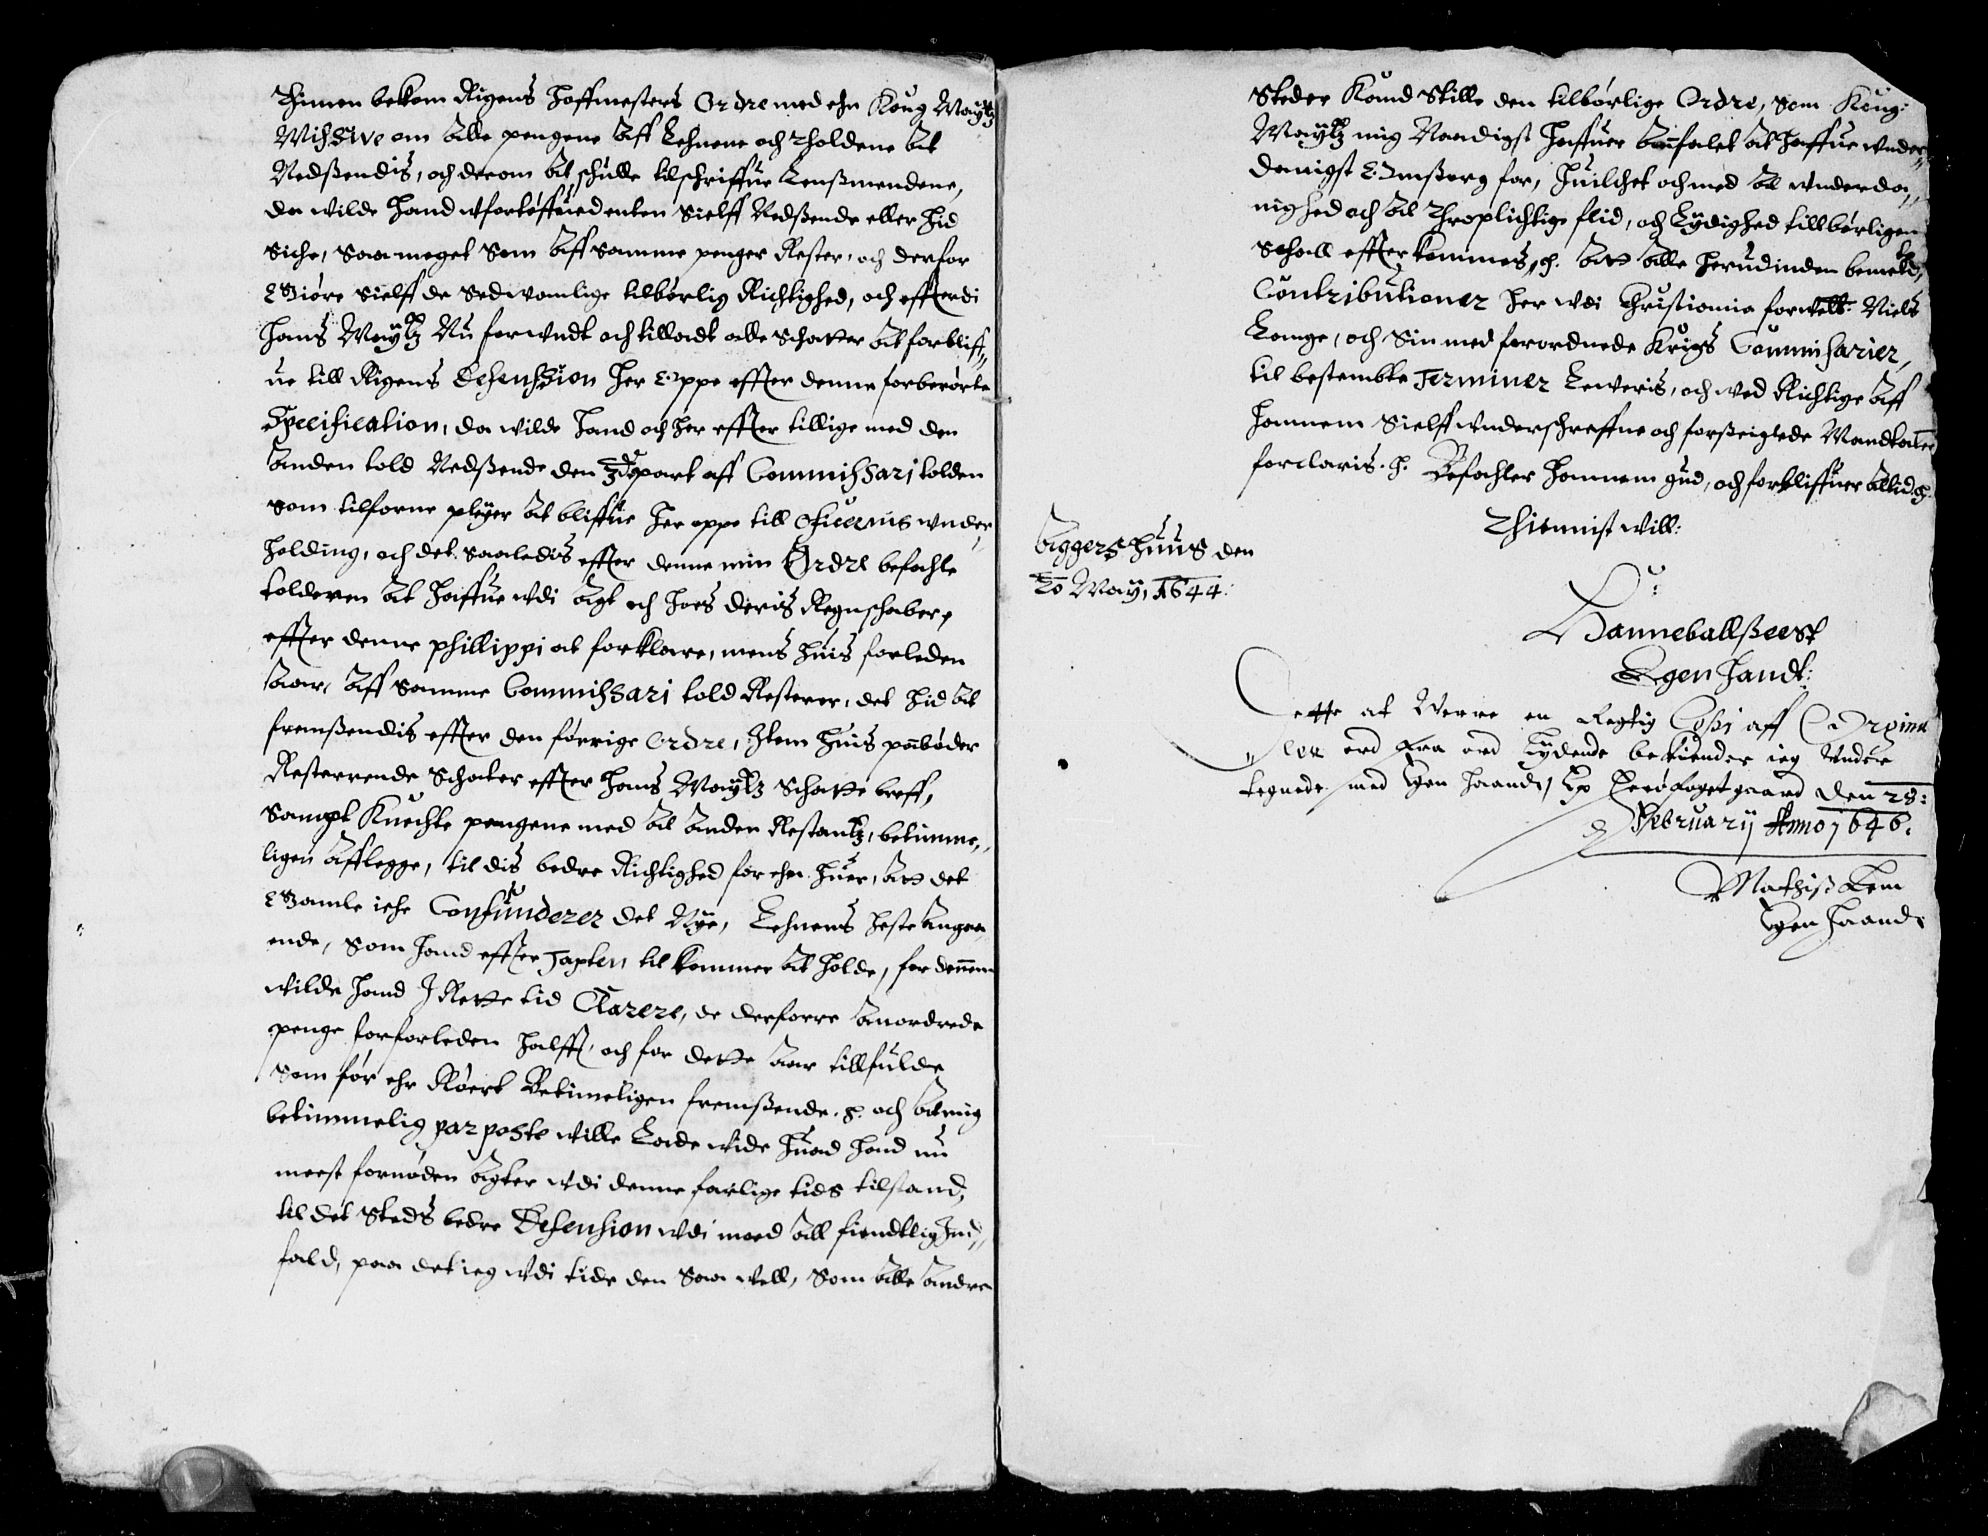 Thimen bekom Rigens Hoffmesters Ordre med ehn Kong Maytz
Missive om alle pengene aff Lehnene och tholdene at
Nedßendis, och derom at schulle tilschriffue Lenßmendene,
da wilde Hand wfortøffued enten Sielff Nedßende eller hid
siche, Saa meget Som aff Samme penger Rester, och derfor
Giøre Sielff de Sedwanlige tilbørlig Richtighed, och effterdi
Hans Maytz Nu forwndt och tilladt alle Schatter at forbliff,,
ue till Rigens Defenssion her Oppe effter denne forberørte
Specification, da wilde Hand och her effter tillige med den
anden told Nedßende den 3de part aff Commissari tolden
Som tilforne pleyer at bliffue her oppe till Officernis wnder,,
holding, och det saaledis effter denne min Ordre befahle
tolderen at haffue wdi agt och hoes deris Regnschaber,
effter denne phillippi at forklare, mens huis forleden
aar, aff Samme Commissari told Resterer, det hid at
fremßendis effter den førrige Ordre, Item huis paabøder
Resterrende Schatter effter Hans Maytz Schatte breff,
Sampt Knechte pengene med al anden Restantz, betimme,,
ligen afflegge, til dis bedre Richtighed for ehn huer, att det
Gamle iche Confunderer det Nye, Lehnens heste angaa,,
ende, Som Hand effter Taxten til kommer at holde, for dennem
wilde Hand I Rette tid Clarere, de derforre anordrede
penge for forleden halfft, och for dette aar tillfulde
Som før ehr Røert Betimeligen fremßende. p. och at mig
betimmelig par poste wille Lade wide huad Hand nu
meest fornøden agter wdi denne farlige tids tilstand,
til det Steds bedre Defension wdi moed all fiendtlig Ind,,
fald, paa det ieg wdi tide den Saa well, Som alle andre
Steder Kand Stille den tilbørlige Ordre, Som Kong:
Maytz mig Naadigst haffuer Anfalet at haffue wnder,,
danigst Omßorg for, huilchet och med al wnderda,,
nighed och al throplichtige flid, och Lydighed tillbørligen
Schall effterkommes, p. att alle herudinden bemelte,
Contributioner her wdi Christiania forwelt: Niels
Lange, och Sin med forordnede Krigs Commisarier,
til bestembte Terminer Leweris, och wed Richtige aff
Hannem Sielff wnderschreffne och forßeiglede Mandtaler
forclaris. p. Befahler Hannem gud, och forbliffuer altid p.
Thienist will:
Aggers huus den
20 May, 1644.
Hannebal ßeest
Egen Handt:
Dette at Werre en Regtig Copi aff Orginn
alen ord fra ord Lydende bekiender ieg Vnder
tegnede med Egen haand, gaard Den 28:
February Anno 1646.
Mathis
Egen haand.